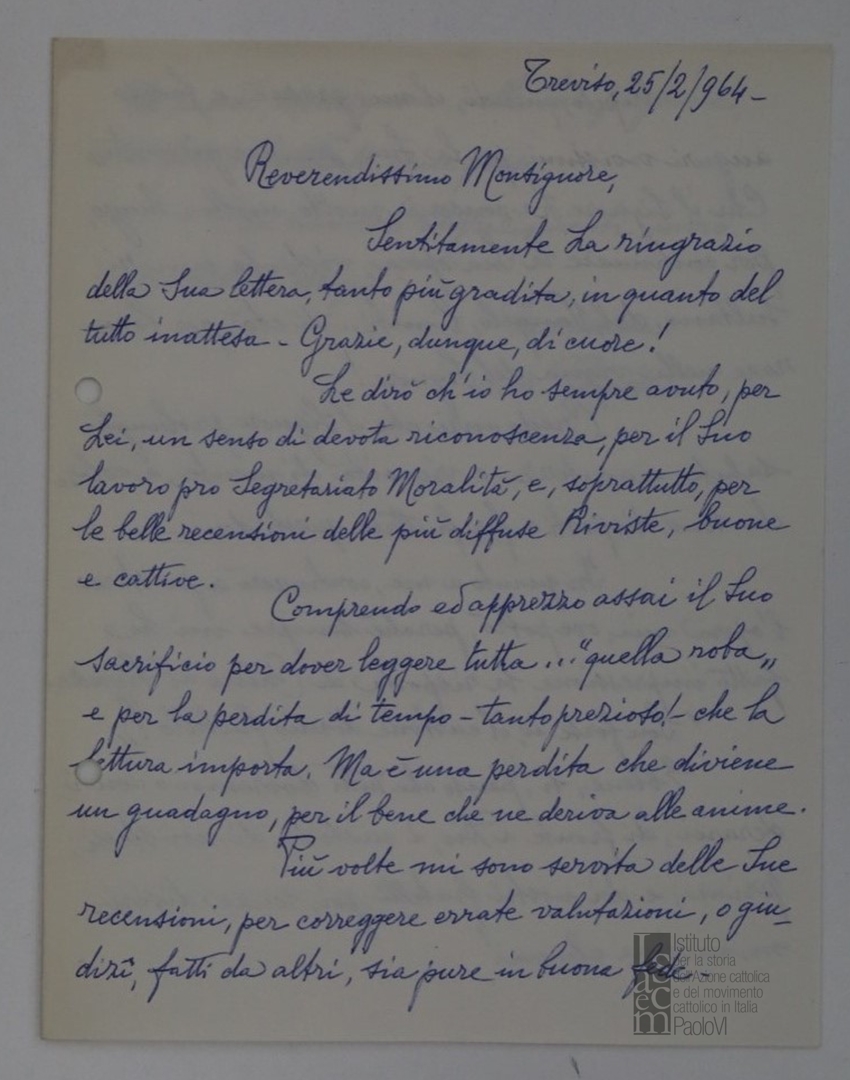 Treviso, 25/2/964-
Reverendissimo Monsignore,
Sentitamente La ringrazio
della Sua lettera, tanto più gradita, in quanto del
tutto inattesa - Grazie, dunque, di cuore!
Le dirò ch'io ho sempre avuto, per
Lei, un senso di devota riconoscenza, per il Suo
lavoro pro Segretariato Moralità, e, soprattutto, per
le belle recensioni delle più diffuse Riviste, buone
e cattive.
Comprendo ed apprezzo assai il Suo
sacrificio per dover leggere tutta... "quella roba„
e per la perdita di tempo - tanto prezioso! - che la
lettura importa. Ma è una perdita che diviene
un guadagno, per il bene che ne deriva alle anime.
Più volte mi sono servita delle Sue
recensioni, per correggere errate valutazioni, o giu-
dizî, fatti da altri, sia pure in buona fede -
Istituto
per la storia
dell'Azione cattolica
e del movimento
cattolico in Italia
PaoloVI